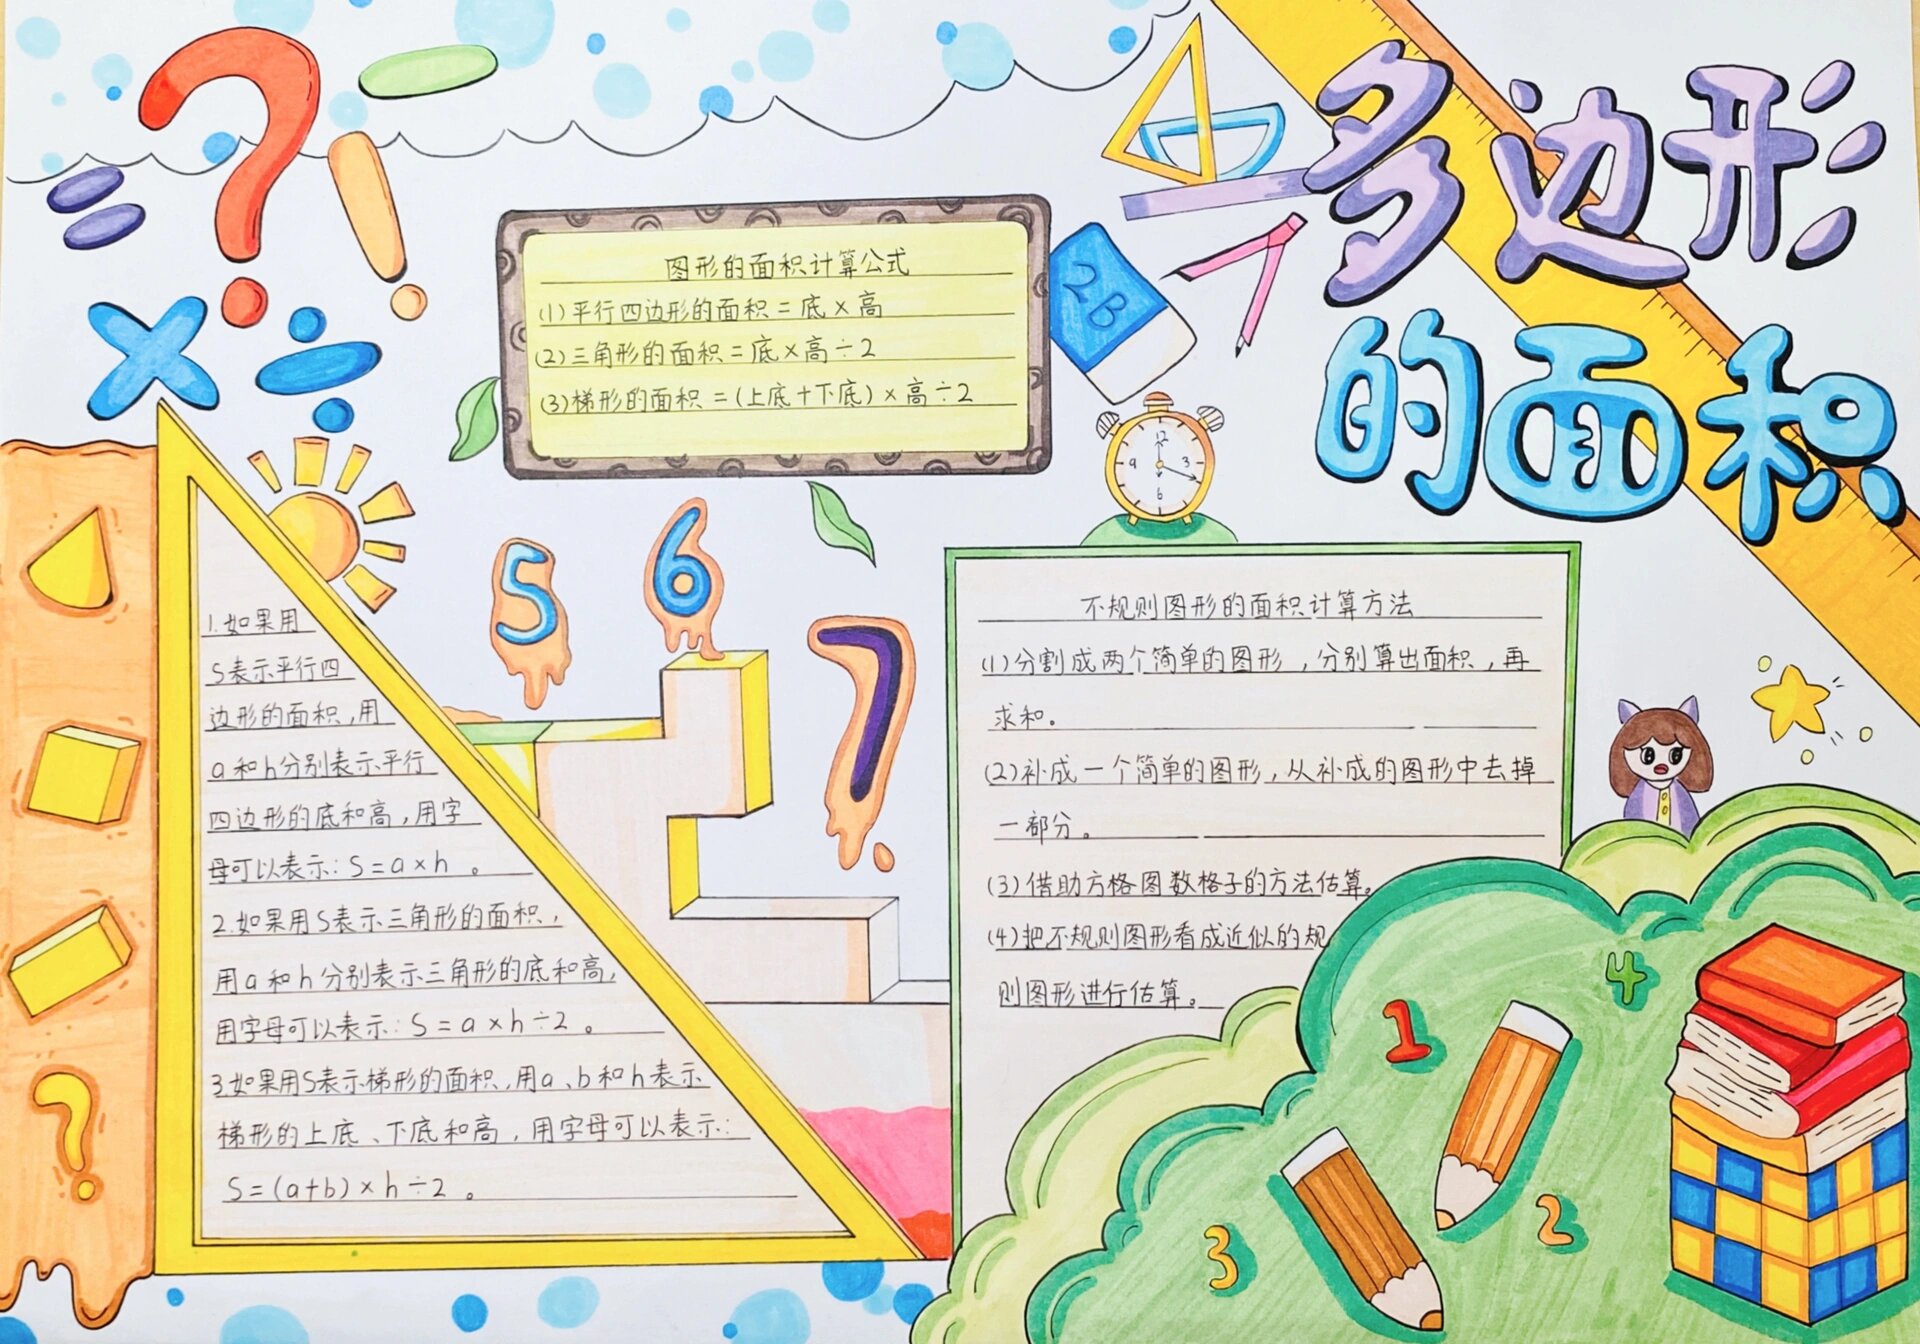 多边形
的面积
图形的面积计算公式
(1)平行四边形的面积=底×高
(2)三角形的面积=底×高÷2
(3)梯形的面积=(上底+下底)×高÷2
2B
12
3
6
9
5
6
7
1.如果用
S表示平行四
边形的面积,用
a和h分别表示平行
四边形的底和高,用字
母可以表示:S=a×h。
2.如果用S表示三角形的面积,
用a和h分别表示三角形的底和高,
用字母可以表示:S=a×h÷2。
3.如果用S表示梯形的面积,用a、b和h表示
梯形的上底、下底和高,用字母可以表示:
S=(a+b)×h÷2。
不规则图形的面积计算方法
(1)分割成两个简单的图形,分别算出面积,再
求和。
(2)补成一个简单的图形,从补成的图形中去掉
一部分。
(3)借助方格图数格子的方法估算。
(4)把不规则图形看成近似的规
则图形进行估算。
1
4
3
2